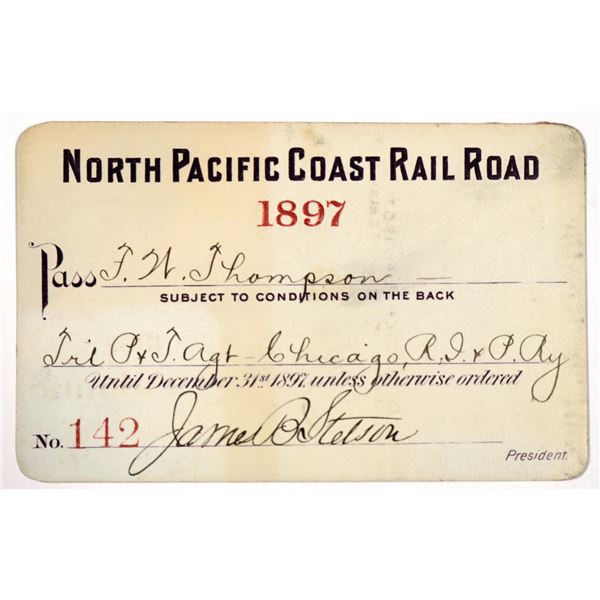 NORTH PACIFIC COAST RAIL ROAD
1897
Pass F. W. Thompson
SUBJECT TO CONDITIONS ON THE BACK
P & T. Agt - Chicago, R. I. & P. Ry
Until December 31st 1897, unless otherwise ordered
No. 142 James B. Stetson
President.